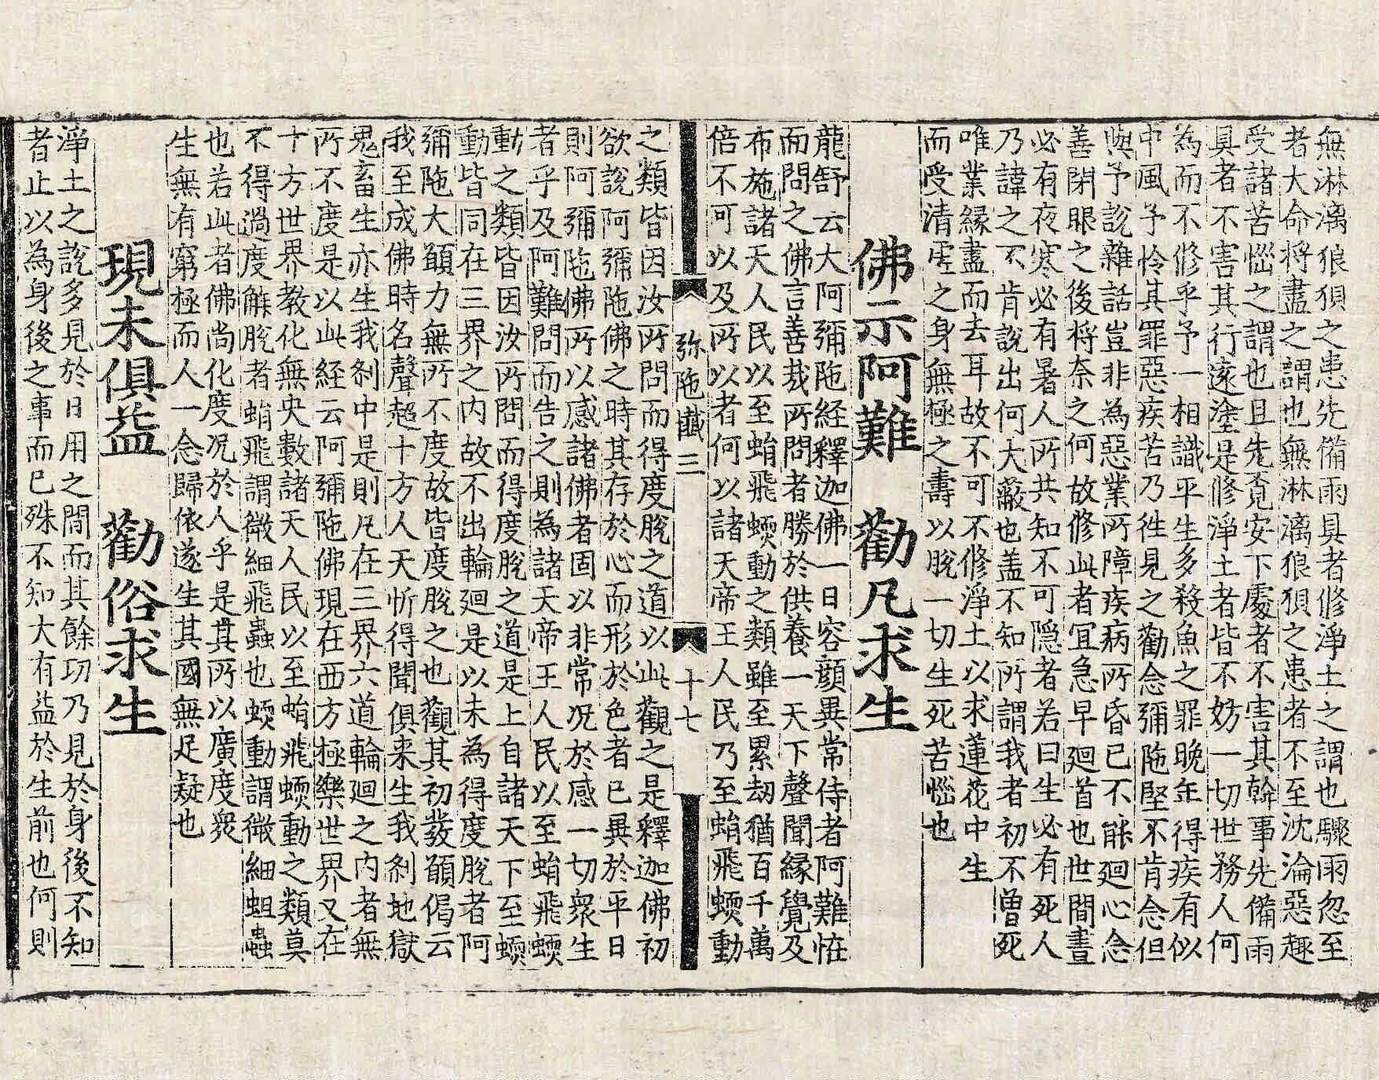 無淋漓狼狽之患先備雨具者修淨土之謂也驟雨忽至
者大命將盡之謂也無淋漓狼狽之患者不至沈淪惡趣
受諸苦惱之謂也且先覓安下處者不害其幹事先備雨
具者不害其行遠塗是修淨土者皆不妨一切世務人何
為而不修乎予一相識平生多殺魚之罪晚年得疾有似
中風予怜其罪惡疾苦乃徃見之勸念彌陁堅不肯念但
與予說雜話豈非為惡業所障疾病所昏已不能廻心念
善閉眼之後將奈之何故修此者宜急早廻首也世間晝
必有夜寒必有暑人所共知不可隐者若曰生必有死人
乃諱之不肯說出何大蔽也盖不知所謂我者初不曾死
唯業緣盡而去耳故不可不修淨土以求蓮花中生
而受清虛之身無極之壽以脫一切生死苦惱也
佛示阿難　勸凡求生
龍舒云大阿彌陁經釋迦佛一日容顔異常侍者阿難恠
而問之佛言善哉所問者勝於供養一天下聲聞緣覺及
布施諸天人民以至蜎飛蝡動之類雖至累劫猶百千萬
倍不可以及所以者何以諸天帝王人民乃至蜎飛蝡動
弥陁懺三　十七
之類皆因汝所問而得度脫之道以此觀之是釋迦佛初
欲說阿彌陁佛之時其存於心而形於色者已異於平日
則阿彌陁佛所以感諸佛者固以非常况於感一切衆生
者乎及阿難問而告之則為諸天帝王人民以至蜎飛蝡
動之類皆因汝所問而得度脫之道是上自諸天下至蝡
動皆同在三界之内故不出輪廻是以未為得度脫者阿
彌陁大願力無所不度故皆度脫之也觀其初發願偈云
我至成佛時名聲超十方人天忻得聞俱来生我剎地獄
鬼畜生亦生我剎中是則凡在三界六道輪廻之内者無
所不度是以此經云阿彌陁佛現在西方極樂世界又在
十方世界教化無央數諸天人民以至蜎飛蝡動之類莫
不得過度解脫者蜎飛謂微細飛蟲也蝡動謂微細蛆蟲
也若此者佛尚化度况於人乎是其所以廣度衆
生無有窮極而人一念歸依遂生其國無足疑也
現未俱益　勸俗求生
淨土之說多見於日用之間而其餘功乃見於身後不知
者止以為身後之事而已殊不知大有益於生前也何則